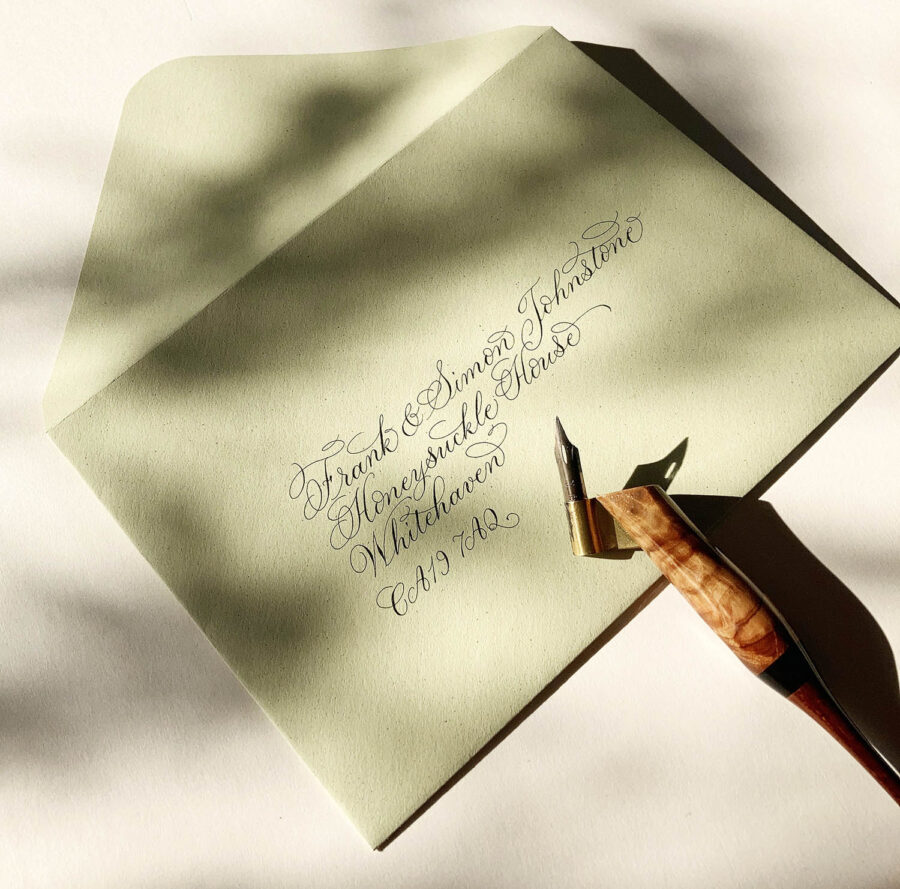 Frank & Simon Johnstone
Honeysuckle House
Whitehaven
CA19 7AQ